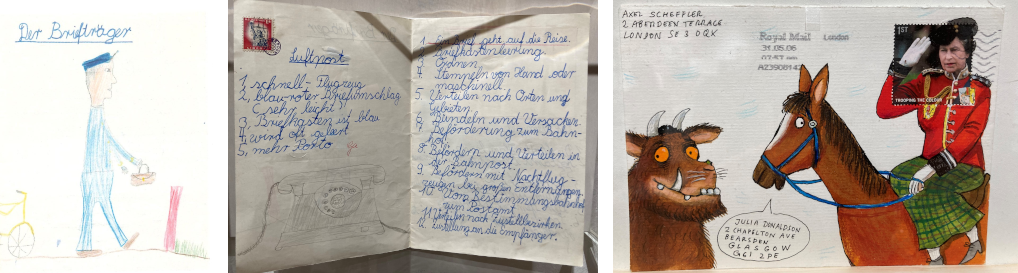 Der Briefträger
Luftpost
1, schnell - Flugzeug
2, blau-roter Briefumschlag
sehr leicht
3, Briefkasten ist blau
4, wird oft geleert
5, mehr Porto
1. geht auf die Reise.
2. Briefkastenleerung.
3. Ordnen
4. Stempeln von Hand oder
maschinell.
5. Verteilen nach Orten und
Gebieten.
6. Bündeln und Versacken.
7. Beförderung zum Bahn-
hof.
8. Befördern und Verteilen in
der Bahnpost.
9. Befördern mit Nachtflug-
zeugen bei großen Entfernungen.
10. Vom Bestimmungsbahnhof
zum Postamt
11. Verteilen nach Zustellbezirken.
12. Zustellung an die Empfänger.
AXEL SCHEFFLER
2 ABERDEEN TERRACE
LONDON SE 3 0QX
Royal Mail London
31.05.06
A23908142
1ST
TROOPING THE COLOUR
JULIA DONALDSON
2 CHAPELTON AVE
BEARSDEN
GLASGOW
G61 2PE